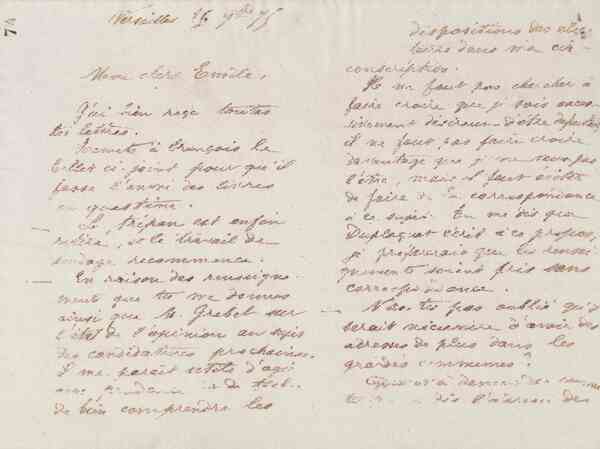 74
Versailles 26 9bre 75
Mon cher Emile,
J'ai bien reçu toutes
tes lettres.
Remets à François le
billet ci-joint pour qu'il
fasse l'envoi des livres
en question.
Le trépan est enfin
retiré, et le travail de
sondage recommence.
En raison des renseigne-
ments que tu me donnes
ainsi que M. Grebel sur
l'état de l'opinion au sujet
des candidatures prochaines,
il me paraît utile d'agir
avec prudence et de
de bien comprendre les
dispositions des élec
teurs dans ma cir-
conscription.
Il ne faut pas chercher à
faire croire que je sois
désireux d'être député,
il ne faut pas faire croire
davantage que je ne veux pas
l'être, mais il faut éviter
de faire de la correspondance
à ce sujet. Tu me dis que
Duplaquet écrit à ce propos,
je préférerais que les rensei-
gnements soient pris sans
correspondance.
N'as-tu pas oublié qu'il
serait nécessaire d'avoir des
adresses de plus dans les
grandes communes?
l'adresse des